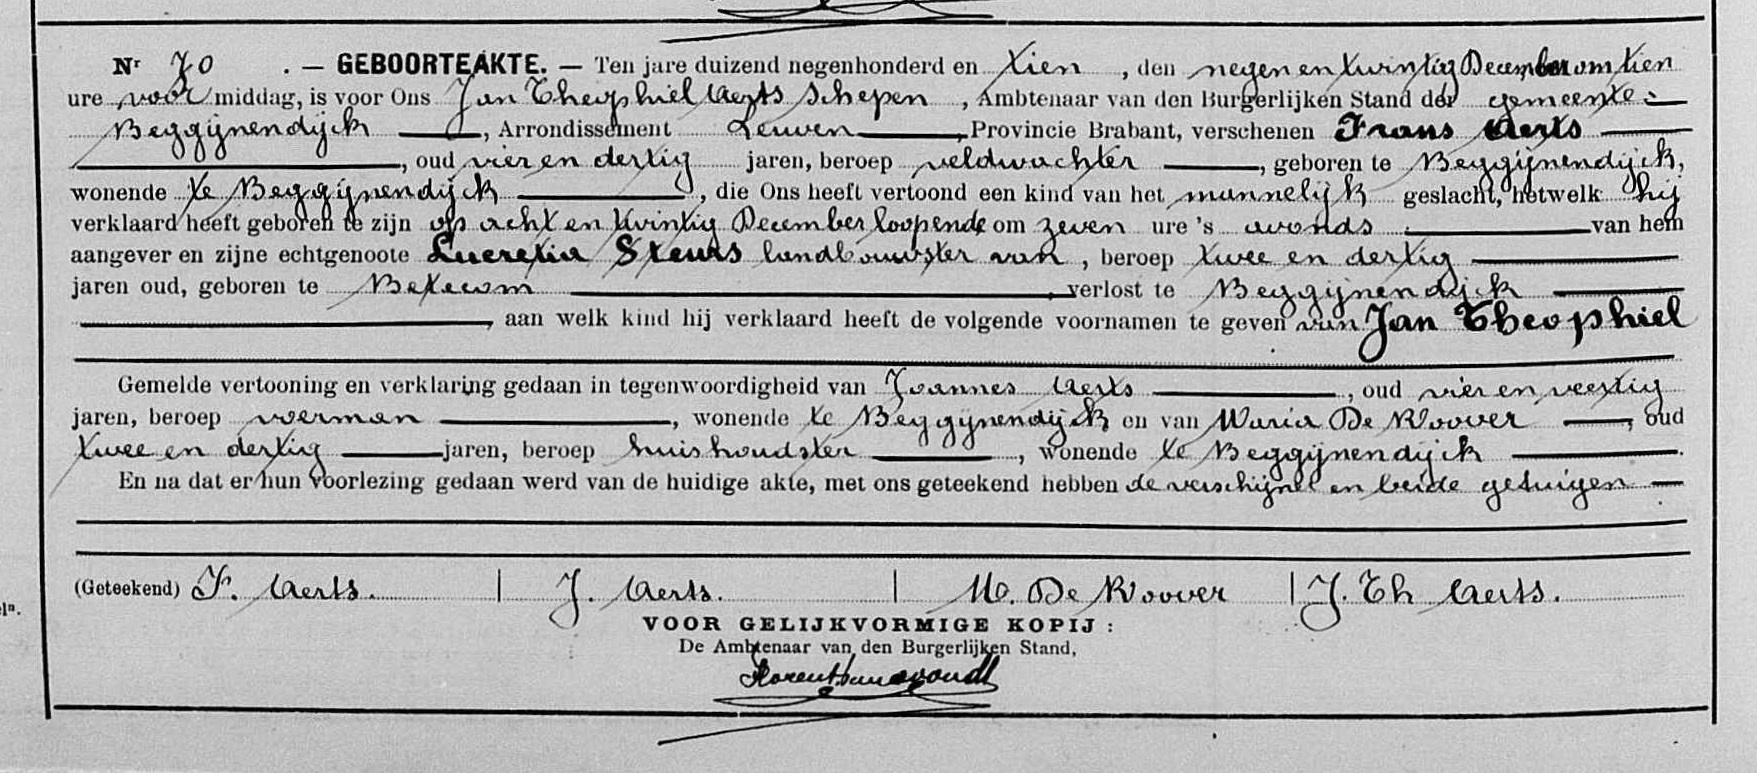 Nr 70 . — GEBOORTEAKTE. — Ten jare duizend negenhonderd en tien , den negen en twintig December om tien
ure voor middag, is voor Ons Jan Theophiel Aerts Schepen , Ambtenaar van den Burgerlijken Stand der gemeente
Beggijnendijck , Arrondissement Leuven , Provincie Brabant, verschenen Frans Aerts
, oud vier en dertig jaren, beroep veldwachter , geboren te Beggijnendijck,
wonende te Beggijnendijck , die Ons heeft vertoond een kind van het mannelijk geslacht, hetwelk hij
verklaard heeft geboren te zijn op acht en twintig December loopende om zeven ure 's avonds van hem
aangever en zijne echtgenoote Lucretia Steurs landbouwster van , beroep twee en dertig
jaren oud, geboren te Betecom , verlost te Beggijnendijck
, aan welk kind hij verklaard heeft de volgende voornamen te geven van Jan Theophiel
Gemelde vertooning en verklaring gedaan in tegenwoordigheid van Joannes Aerts , oud vier en veertig
jaren, beroep werman , wonende te Beggijnendijck en van Maria De Roover , oud
twee en dertig jaren, beroep huishoudster , wonende te Beggijnendijck .
En na dat er hun voorlezing gedaan werd van de huidige akte, met ons geteekend hebben de verschijner en beide getuigen
(Geteekend) F. Aerts. | J. Aerts. | M. De Roover | J. Th Aerts.
VOOR GELIJKVORMIGE KOPIJ :
De Ambtenaar van den Burgerlijken Stand,